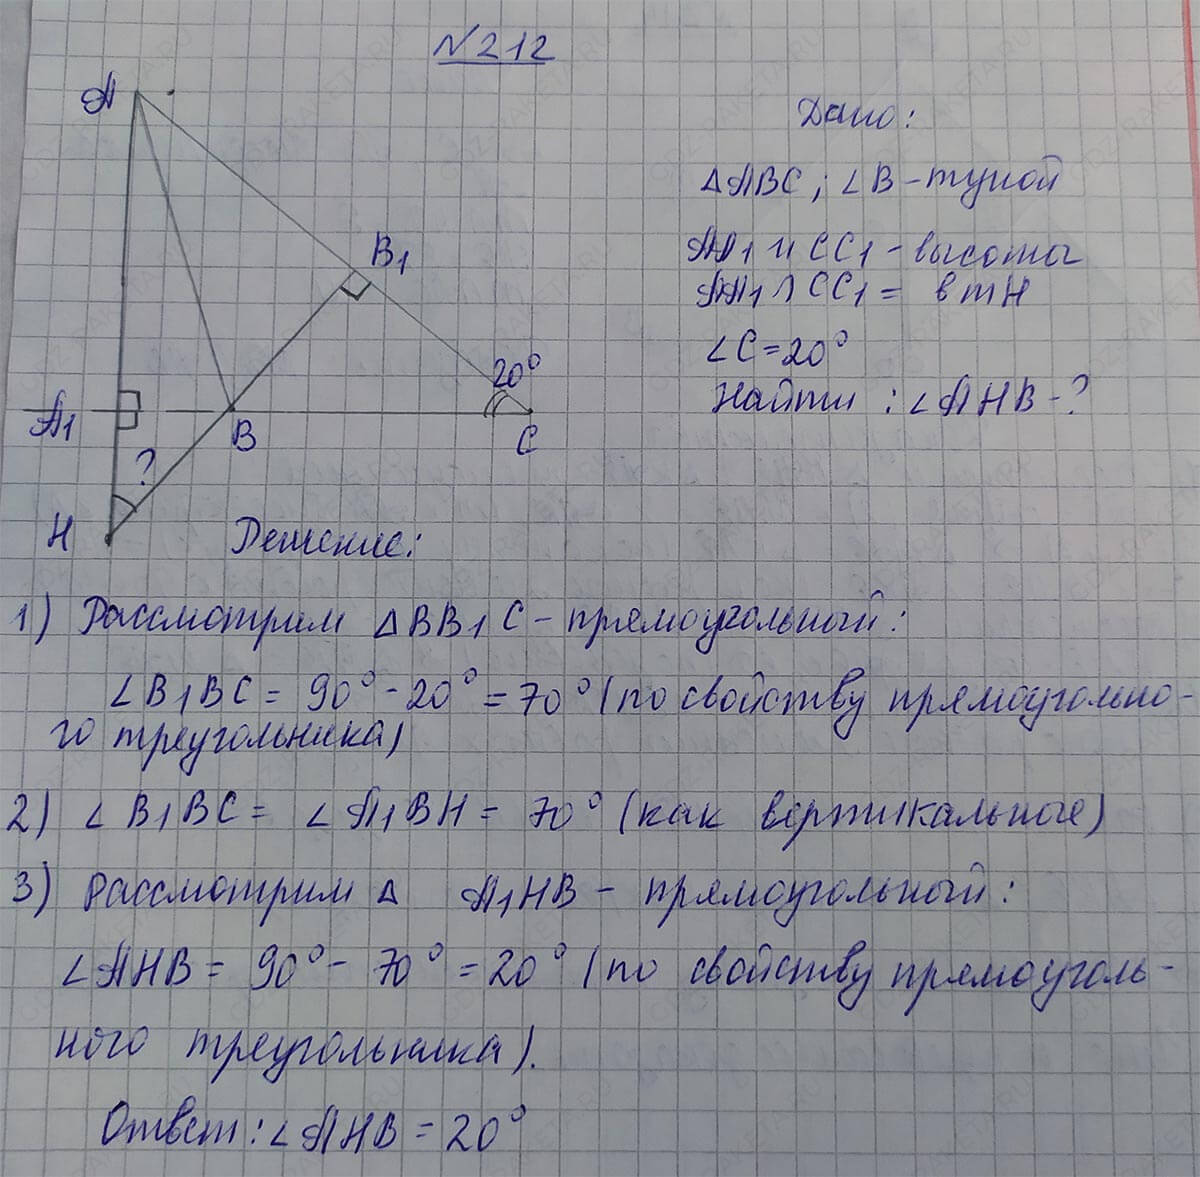 №212
Дано:
△ABC; ∠B - тупой
AA1 и CC1 - высоты
AA1 ∩ CC1 = в т H
∠C = 20°
Найти: ∠AHB - ?
A
B1
20°
A1
B
C
?
H
Решение:
1) Рассмотрим △BB1C - прямоугольный:
∠B1BC = 90° - 20° = 70° (по свойству прямоугольно-
го треугольника)
2) ∠B1BC = ∠A1BH = 70° (как вертикальные)
3) Рассмотрим △ A1HB - прямоугольный:
∠AHB = 90° - 70° = 20° (по свойству прямоуголь-
ного треугольника).
Ответ: ∠AHB = 20°
GDZ-RAKETA.RU